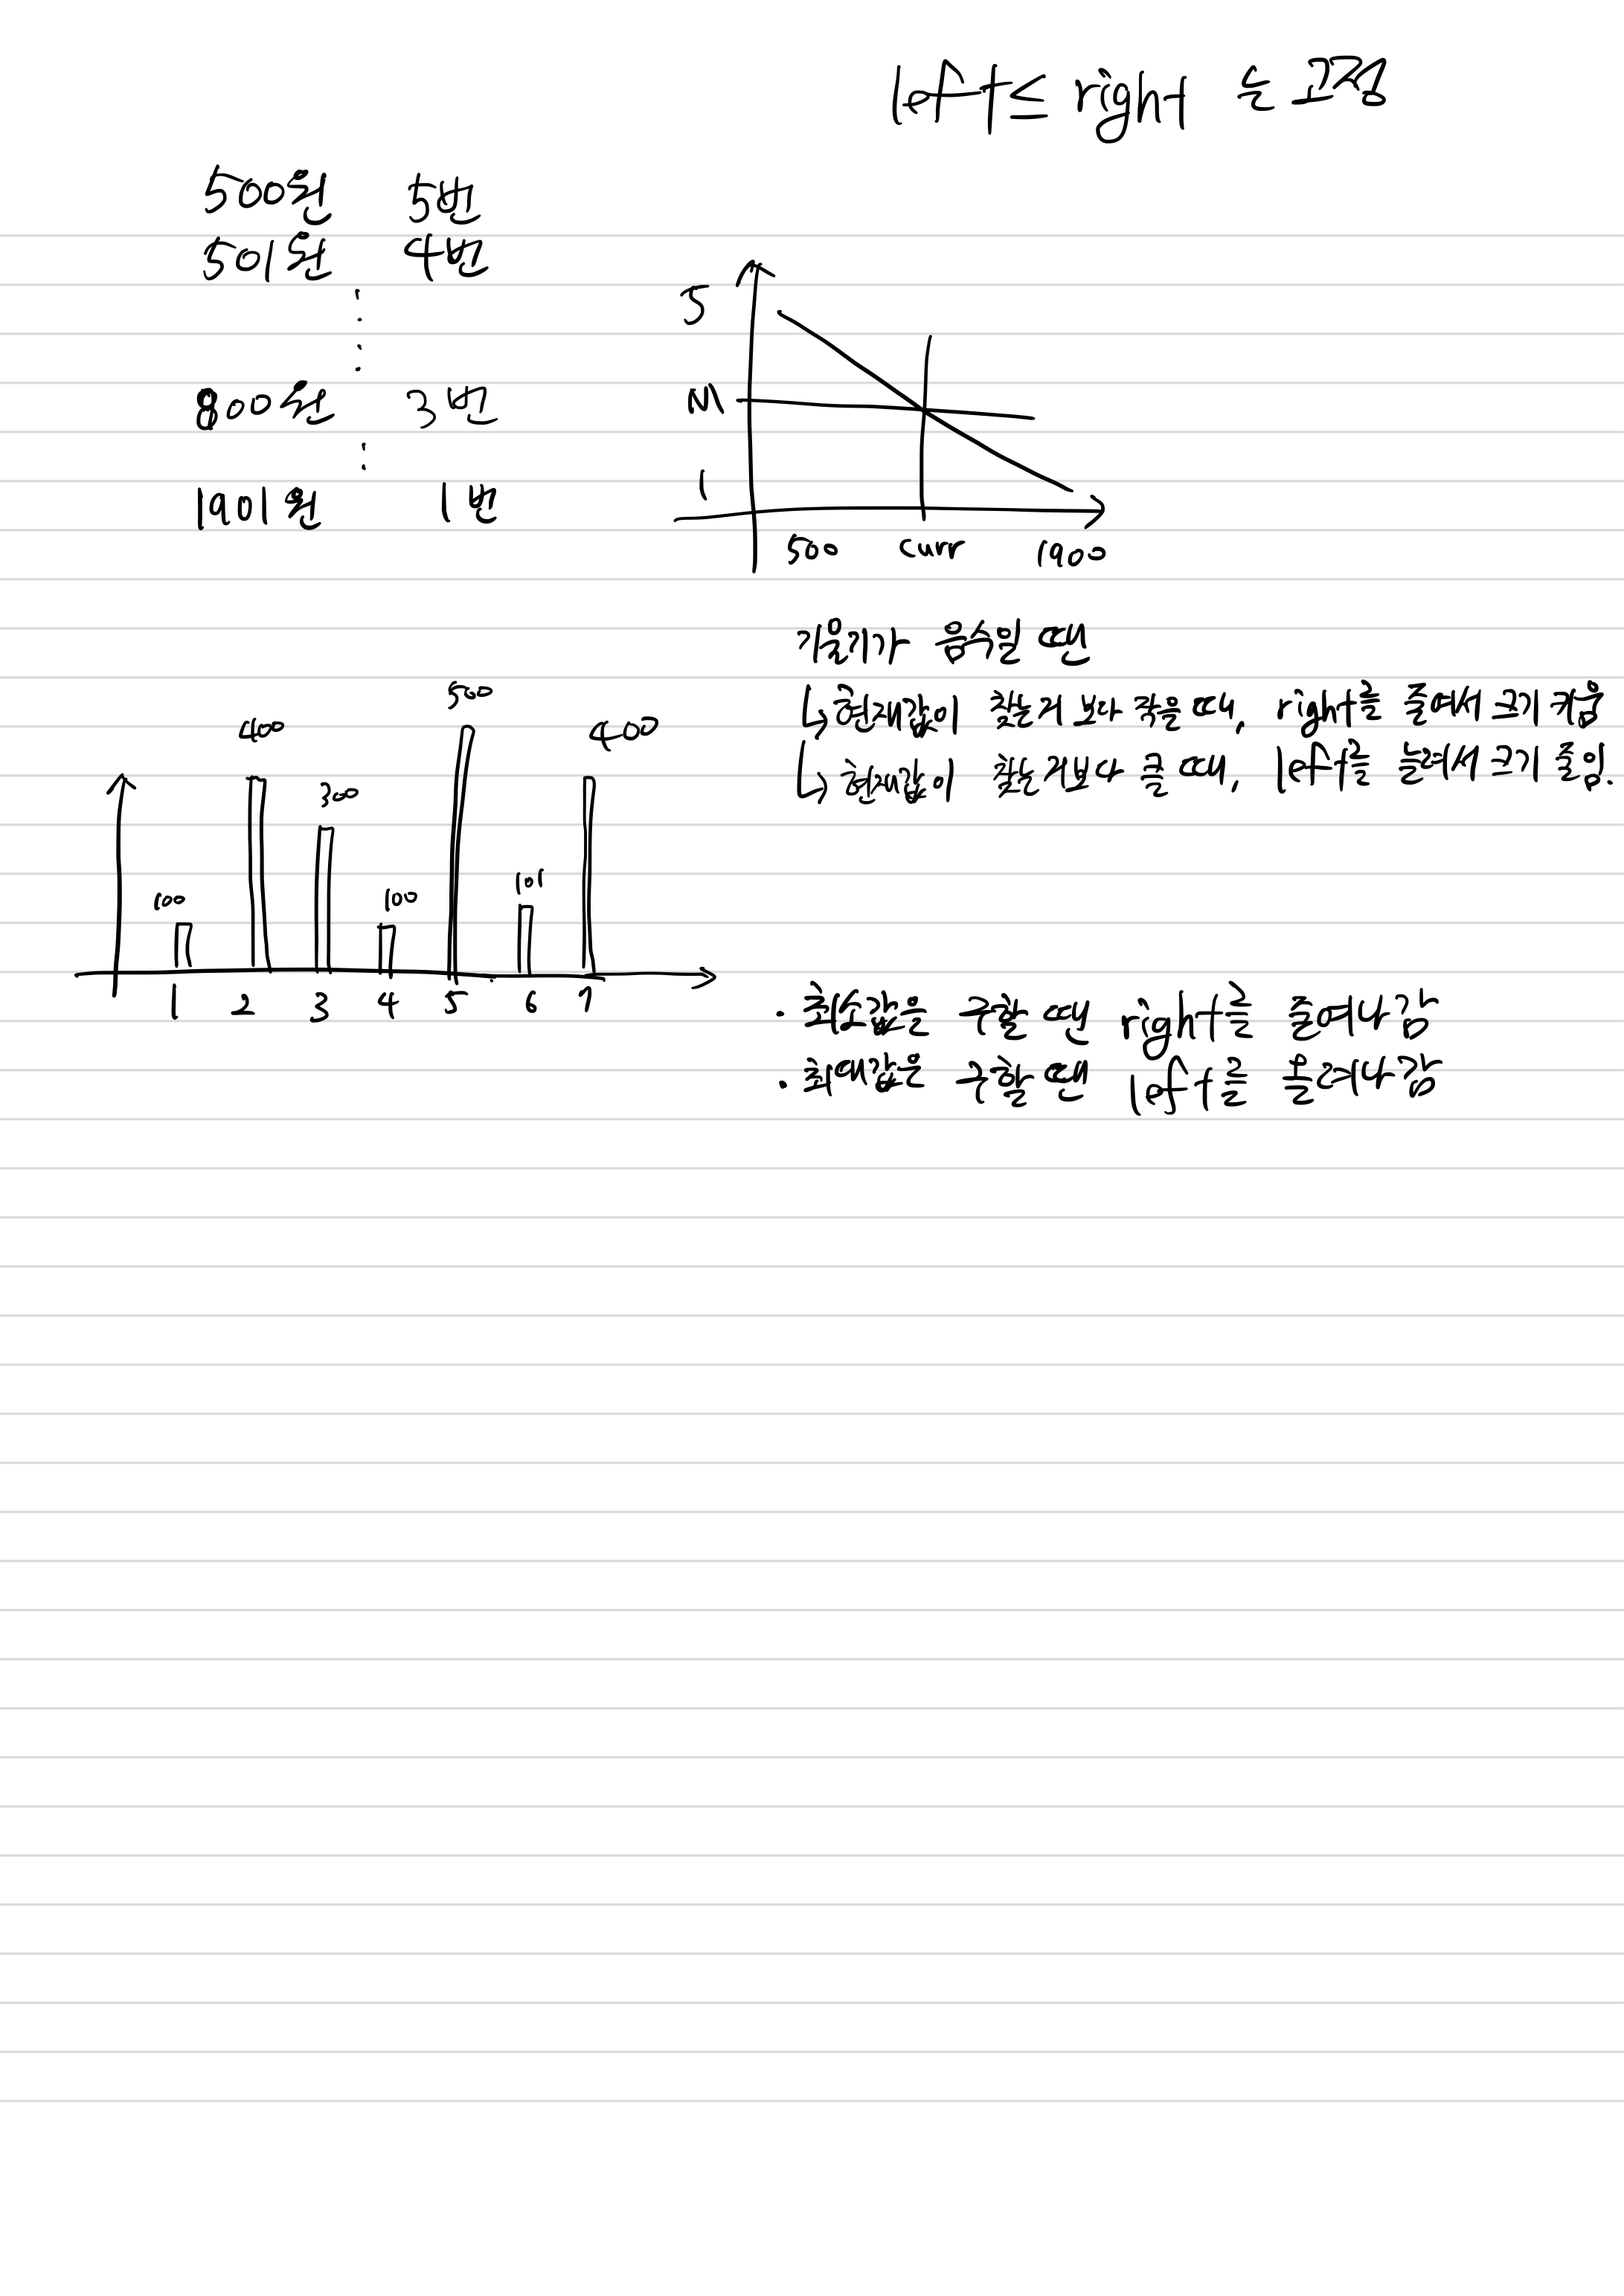 left ≤ right 는 고정
500원 5번
501원 4번
800원 3번
1901원 1번
5
N
1
500 curr 1900
기울기가 음수일 땐
↳ 현재값이 찾는거 보다 작을 때, right를 줄여서 크기 키움
↳ 현재값이 찾는거보다 클 때, left를 늘려서 크기 줄임.
100 400 300 100 500 101 400
1 2 3 4 5 6 7
· 최소값을 구할 땐 right를 줄여나감
· 최대값을 구할 땐 left를 올려나감